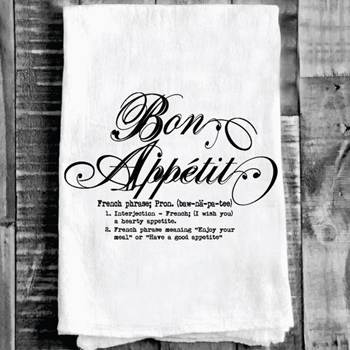 Bon
Appétit
French phrase; Pron. (baw-nӓ-pa-tee)
1. Interjection - French; (I wish you)
a hearty appetite.
2. French phrase meaning "Enjoy your
meal" or "Have a good appetite"